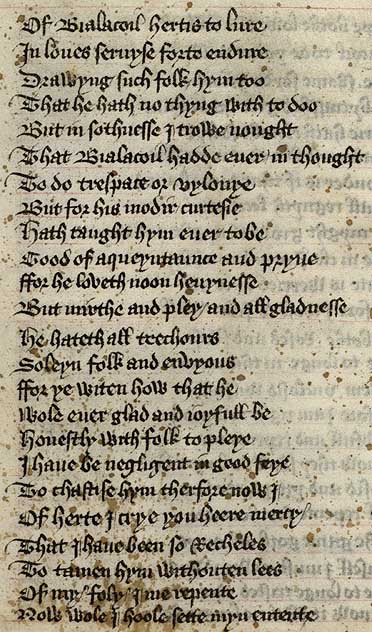 Of Bialacoil hertis to lure
In loues seruyse forto endure
Drawyng such folk hym too
That he hath no thyng with to doo
But in sothnesse I trowe nought
That Bialacoil hadde euer in thought
To do trespace or vylonye
But for his modir curtesie
Hath taught hym euer to be
Good of aqueyntaunce and pryue
ffor he loveth noon heuynesse
But mirthe and pley and all gladnesse
He hateth all trechours
Soleyn folk and envyous
ffor ye witen how that he
Wole euer glad and ioyfull be
Honestly with folk to pleye
I haue be negligent in good feye
To chastise hym therfore now I
Of herte I crye you heere mercy
That I haue been so Recheles
To tamen hym withouten lees
Of my foly I me repente
Now wole I hoole sette myn entente